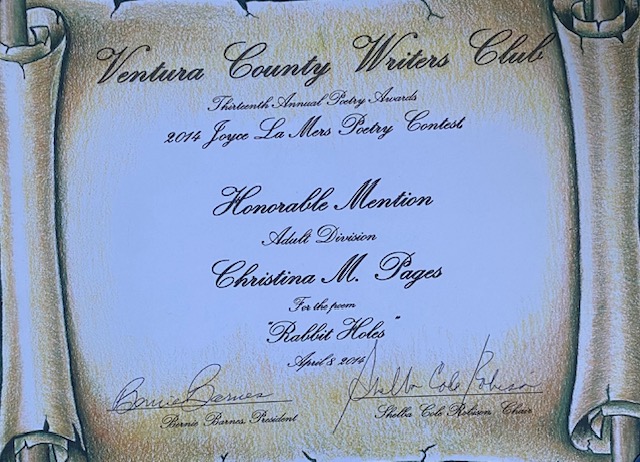 Ventura County Writers Club
Thirteenth Annual Poetry Awards
2014 Joyce La Mers Poetry Contest
Honorable Mention
Adult Division
Christina M. Pages
For the poem
"Rabbit Holes"
April 8 2014
Bernie Barnes Shelba Cole Robison
Bernie Barnes, President Shelba Cole Robison, Chair